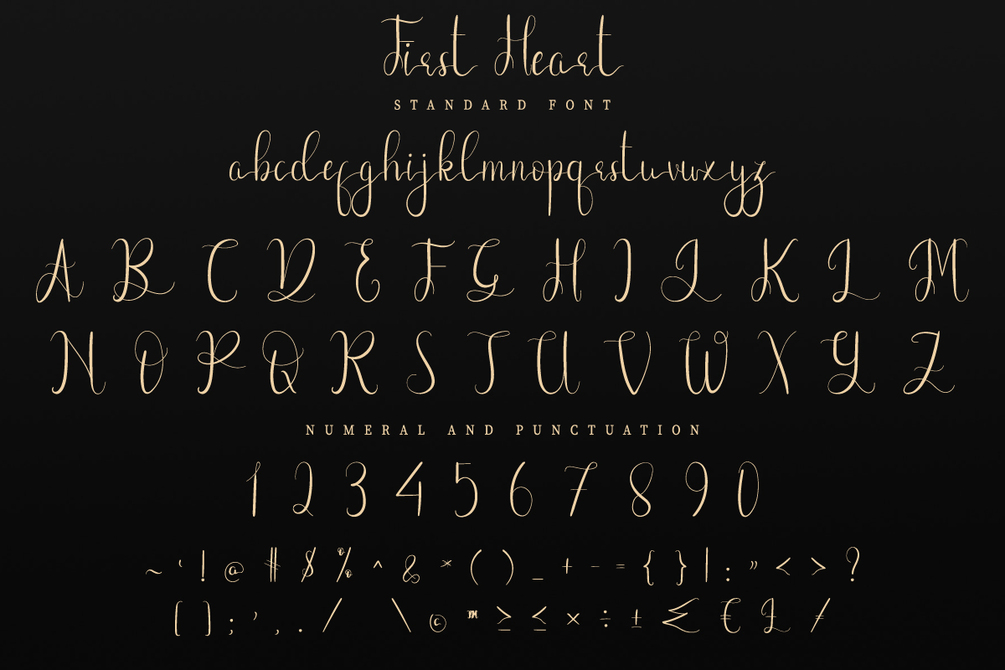 First Heart
STANDARD FONT
abcdefghijklmnopqrstuvwxyz
A B C D E F G H I J K L M
N O P Q R S T U V W X Y Z
NUMERAL AND PUNCTUATION
1 2 3 4 5 6 7 8 9 0
~ ` ! @ # $ % ^ & * ( ) _ + - = { } | : " < > ?
[ ] ; ' , . / \ © ™ ≥ ≤ × ÷ ± € £ /